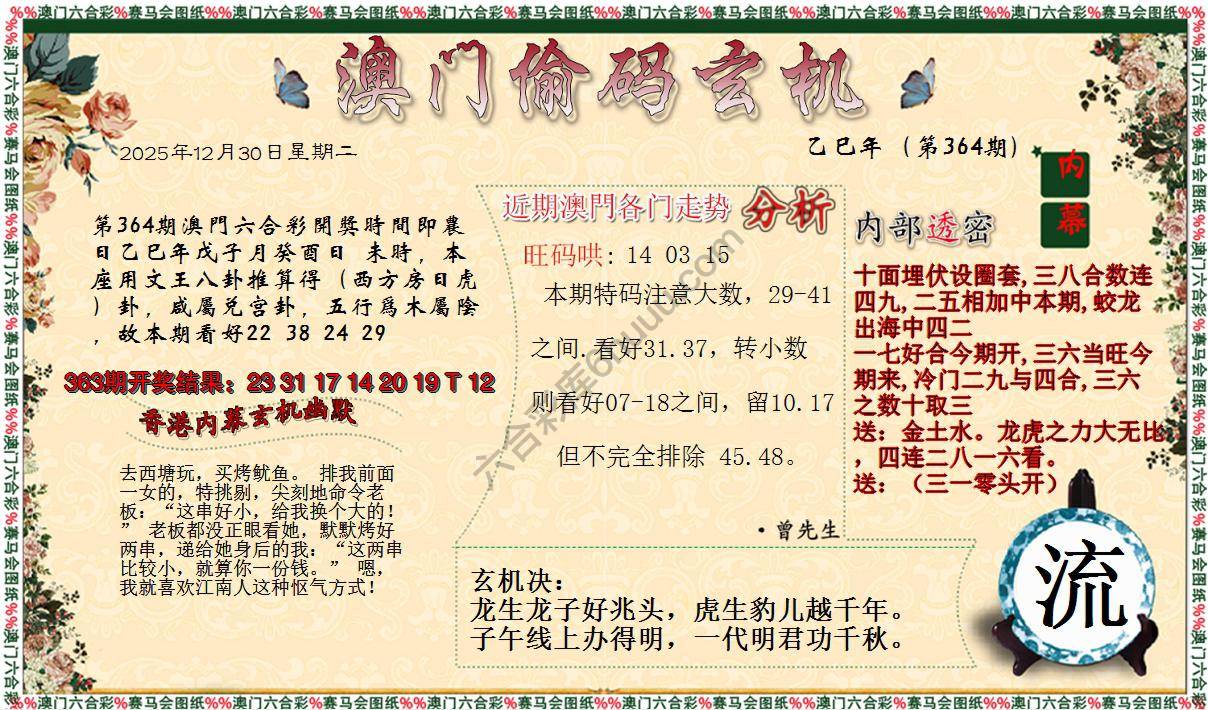 %%澳门六合彩%赛马会图纸%%澳门六合彩%赛马会图纸%%澳门六合彩%赛马会图纸%%澳门六合彩%赛马会图纸%%澳门六合彩%赛马会图纸%%澳门六合彩%赛马会图纸%%
澳门偷码玄机
2025年12月30日星期二
乙巳年（第364期）
内幕
第364期澳門六合彩開獎時間即農
日乙巳年戊子月癸酉日 未時，本
座用文王八卦推算得（西方房日虎
）卦，咸屬兑宫卦，五行爲木屬陰
，故本期看好22 38 24 29
363期开奖结果：23 31 17 14 20 19 T 12
香港内幕玄机幽默
去西塘玩，买烤鱿鱼。 排我前面
一女的，特挑剔，尖刻地命令老
板：“这串好小，给我换个大的！
” 老板都没正眼看她，默默烤好
两串，递给她身后的我：“这两串
比较小，就算你一份钱。” 嗯，
我就喜欢江南人这种怄气方式！
近期澳門各门走势 分析
旺码哄：14 03 15
本期特码注意大数，29-41
之间.看好31.37，转小数
则看好07-18之间，留10.17
但不完全排除 45.48。
·曾先生
内部透密
十面埋伏设圈套,三八合数连
四九,二五相加中本期,蛟龙
出海中四二
一七好合今期开,三六当旺今
期来,冷门二九与四合,三六
之数十取三
送：金土水。龙虎之力大无比
，四连二八一六看。
送：（三一零头开）
玄机决：
龙生龙子好兆头，虎生豹儿越千年。
子午线上办得明，一代明君功千秋。
流
%%澳门六合彩%赛马会图纸%%澳门六合彩%赛马会图纸%%澳门六合彩%赛马会图纸%%澳门六合彩%赛马会图纸%%澳门六合彩%赛马会图纸%%澳门六合彩%赛马会图纸%%